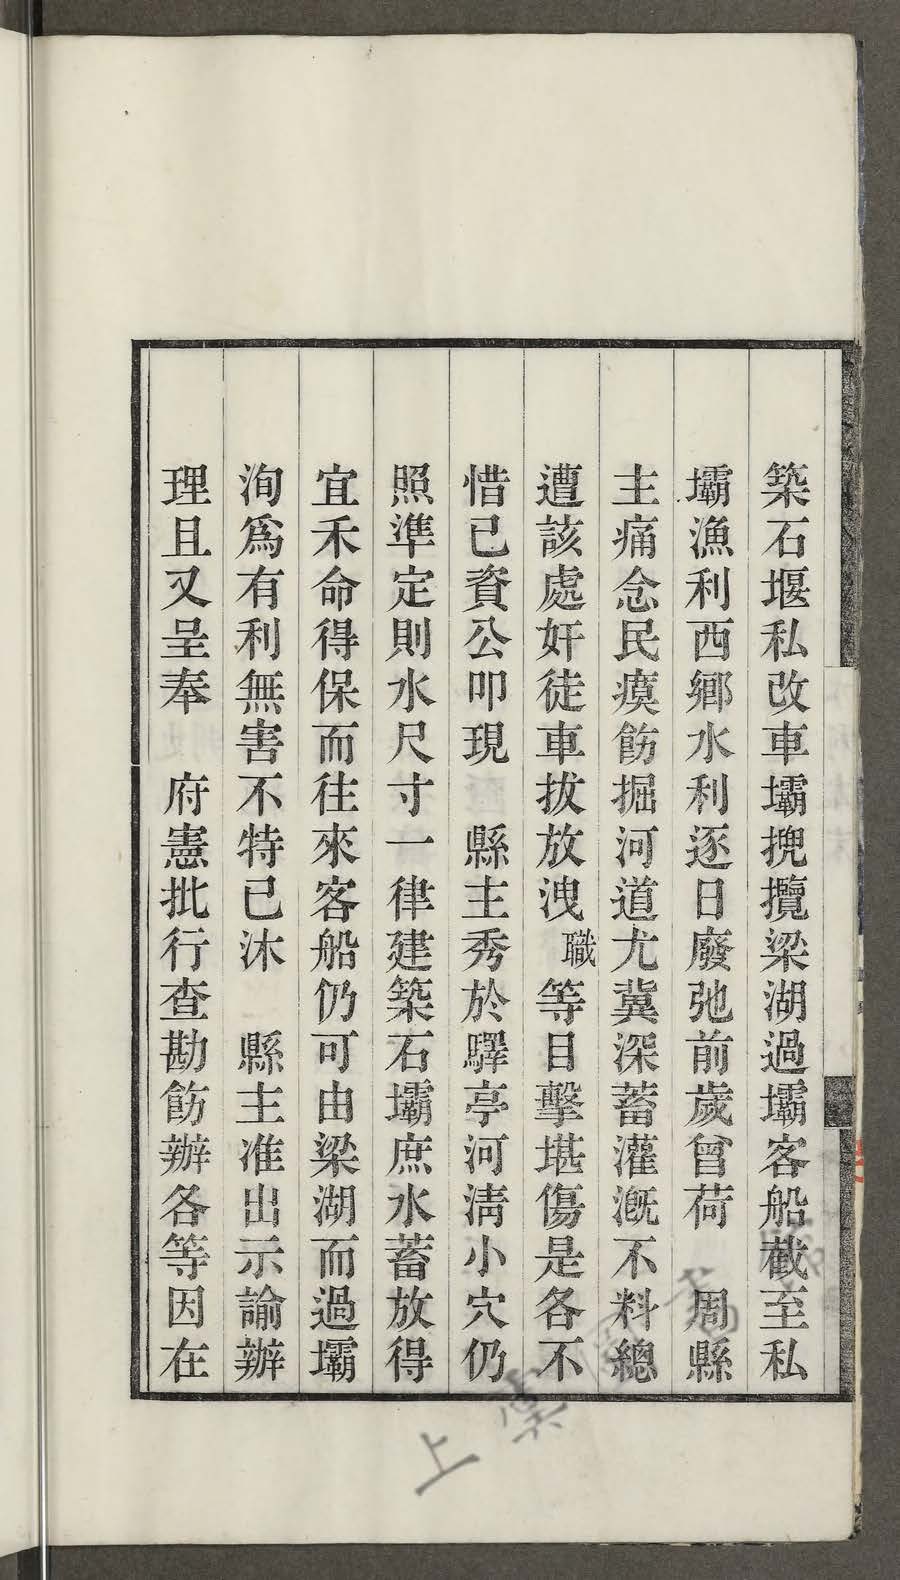 築石堰私改車壩㧈攬梁湖過壩客船截至私
壩漁利西鄉水利逐日廢弛前歲曾荷　周縣
主痛念民瘼飭掘河道尤冀深蓄灌漑不料總
遭該處奸徒車拔放洩職等目擊堪傷是各不
惜已資公叩現　縣主秀於驛亭河淸小穴仍
照準定則水尺寸一律建築石壩庶水蓄放得
宜禾命得保而往來客船仍可由梁湖而過壩
洵爲有利無害不特已沐　縣主准出示諭辦
理且又呈奉　府憲批行查勘飭辦各等因在
上虞圖書館